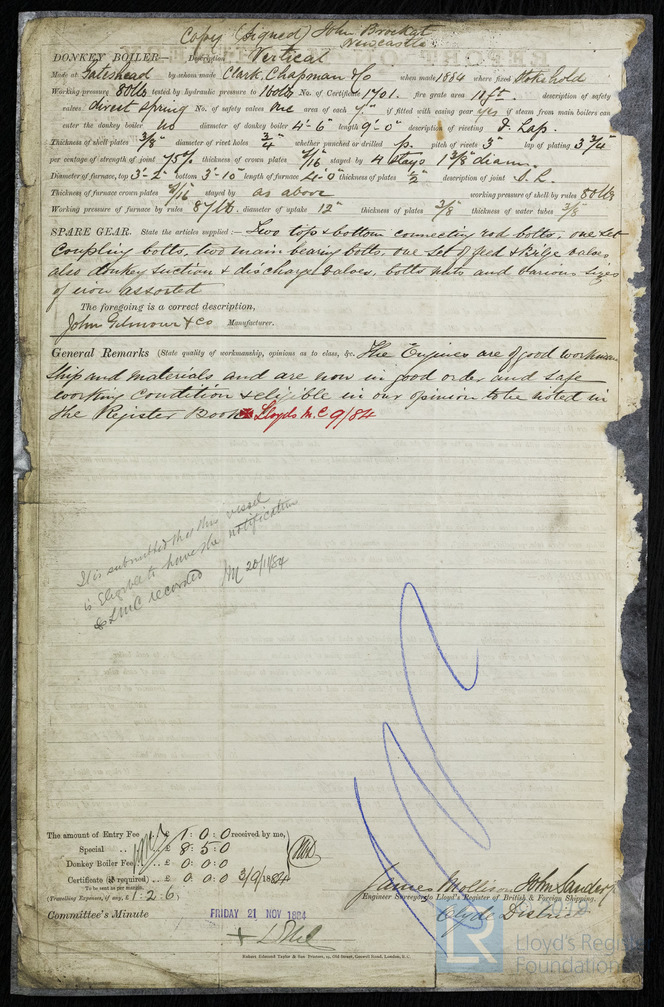 Copy (Signed) John Brockat
Newcastle
DONKEY BOILER— Description Vertical
Made at Gateshead by whom made Clark, Chapman & Co when made 1884 where fixed Stokehold
Working pressure 80lb tested by hydraulic pressure to 160lb No. of Certificate 1701. fire grate area 11 ft. description of safety
valves direct spring No. of safety valves one area of each if fitted with easing gear yes if steam from main boilers can
enter the donkey boiler No diameter of donkey boiler 4'-6" length 9'-0" description of riveting D. Lap.
Thickness of shell plates 3/8" diameter of rivet holes 3/4" whether punched or drilled p. pitch of rivets 3" lap of plating 3 3/4"
per centage of strength of joint 75% thickness of crown plates 9/16 stayed by 4 stays 1 5/8 diam.
Diameter of furnace, top 3'-2" bottom 3'-10" length of furnace 4'-0" thickness of plates 1/2" description of joint S. L.
Thickness of furnace crown plates 9/16 stayed by as above working pressure of shell by rules 80lb
Working pressure of furnace by rules 87lb. diameter of uptake 12" thickness of plates 3/8" thickness of water tubes 3/8"
SPARE GEAR. State the articles supplied:— Two top & bottom connecting rod bolts, one set
coupling bolts, two main bearing bolts, one set of feed & bilge valves,
also donkey suction & discharge valves, bolts nuts and various sizes
of iron assorted
The foregoing is a correct description,
John Gilmour & Co Manufacturer.
General Remarks (State quality of workmanship, opinions as to class, &c. The Engines are of good workman
ship and materials and are now in good order and safe
working condition & eligible in our opinion to be noted in
the Register Book ✠ Lloyds M.C 9/84
It is submitted that this vessel
is Eligible to have the notification
✠ LMC recorded 20/11/84
The amount of Entry Fee .. £ 1 : 0 : 0 received by me,
Special .. £ 8 : 5 : 0
Donkey Boiler Fee .. £ 0 : 0 : 0
Certificate (if required) .. £ 0 0 : 0 3/9/1884
To be sent as per margin.
(Travelling Expenses, if any, £ 1 - 2 - 6)
James Mollison John Sanders
Engineer Surveyors to Lloyd's Register of British & Foreign Shipping.
Clyde District
Committee's Minute FRIDAY 21 NOV 1884
+ LMC
Robert Edmund Taylor & Son Printers, 19, Old Street, Goswell Road, London, E.C.
LR
Lloyd's Register
Foundation